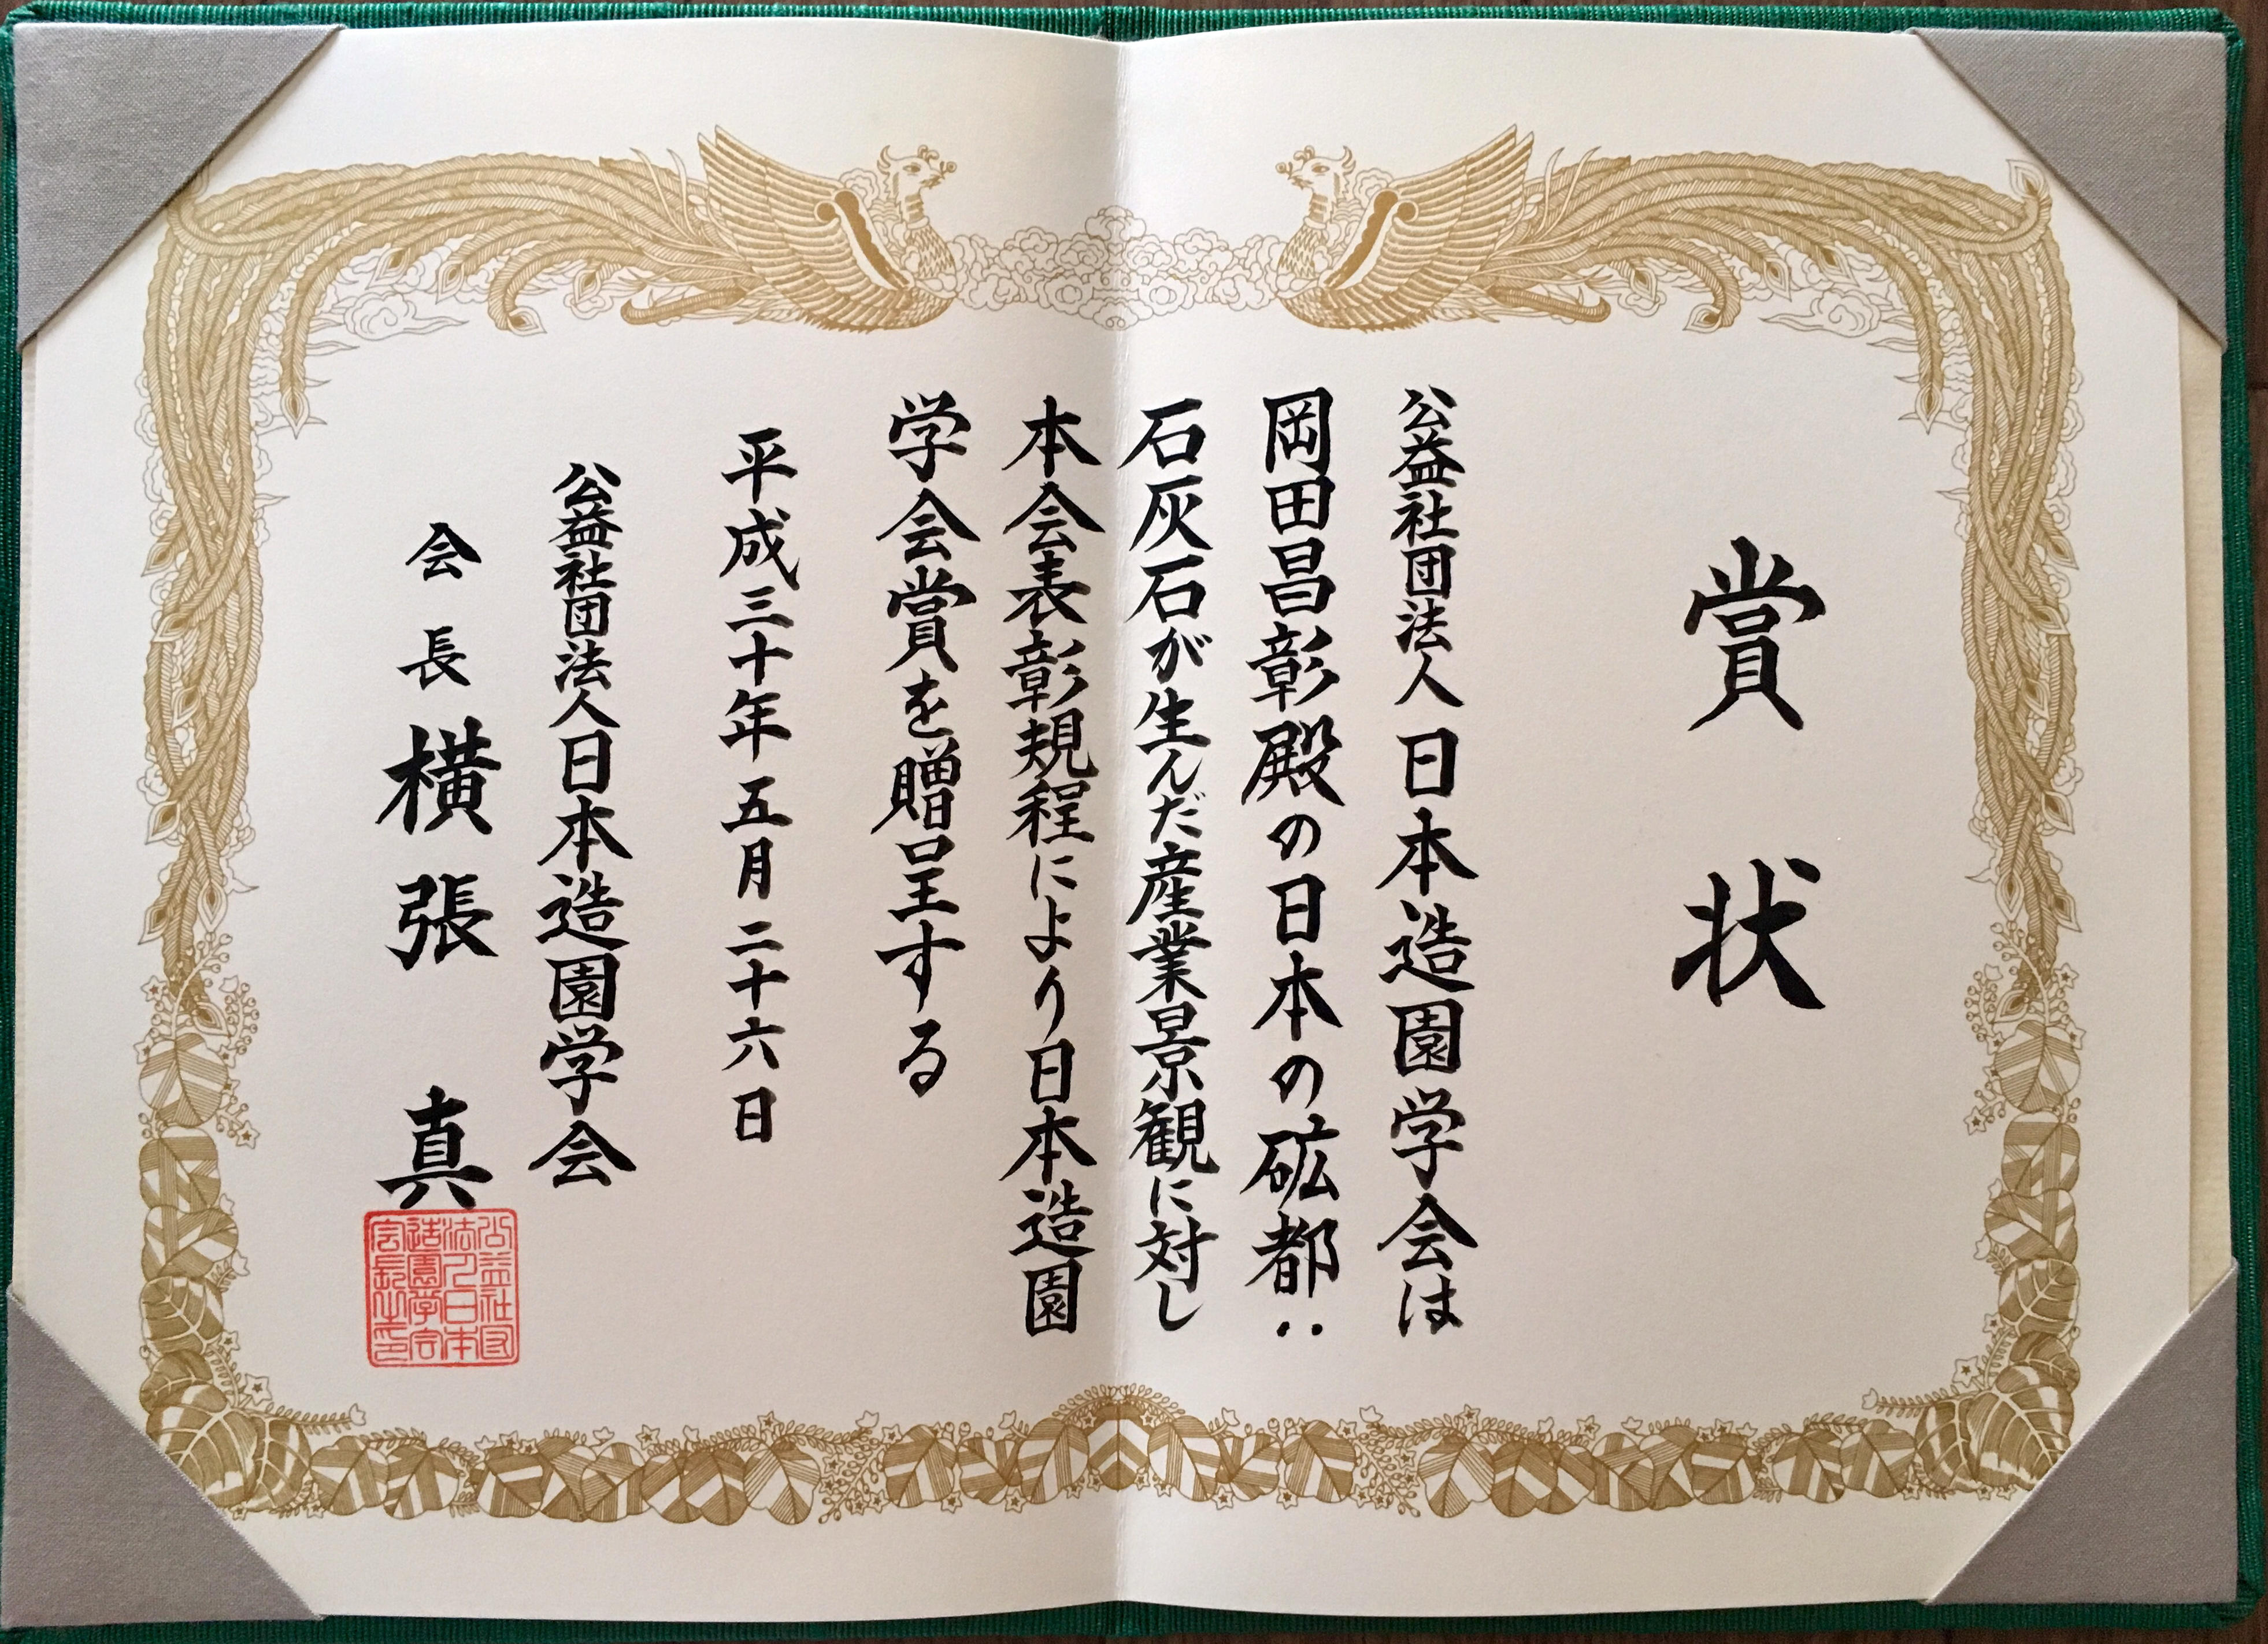 賞状
公益社団法人日本造園学会は
岡田昌彰殿の日本の砿都‥
石灰石が生んだ産業景観に対し
本会表彰規程により日本造園
学会賞を贈呈する
平成三十年五月二十六日
公益社団法人日本造園学会
会長横張真
公益社団
法人日本
造園学会
会長之印